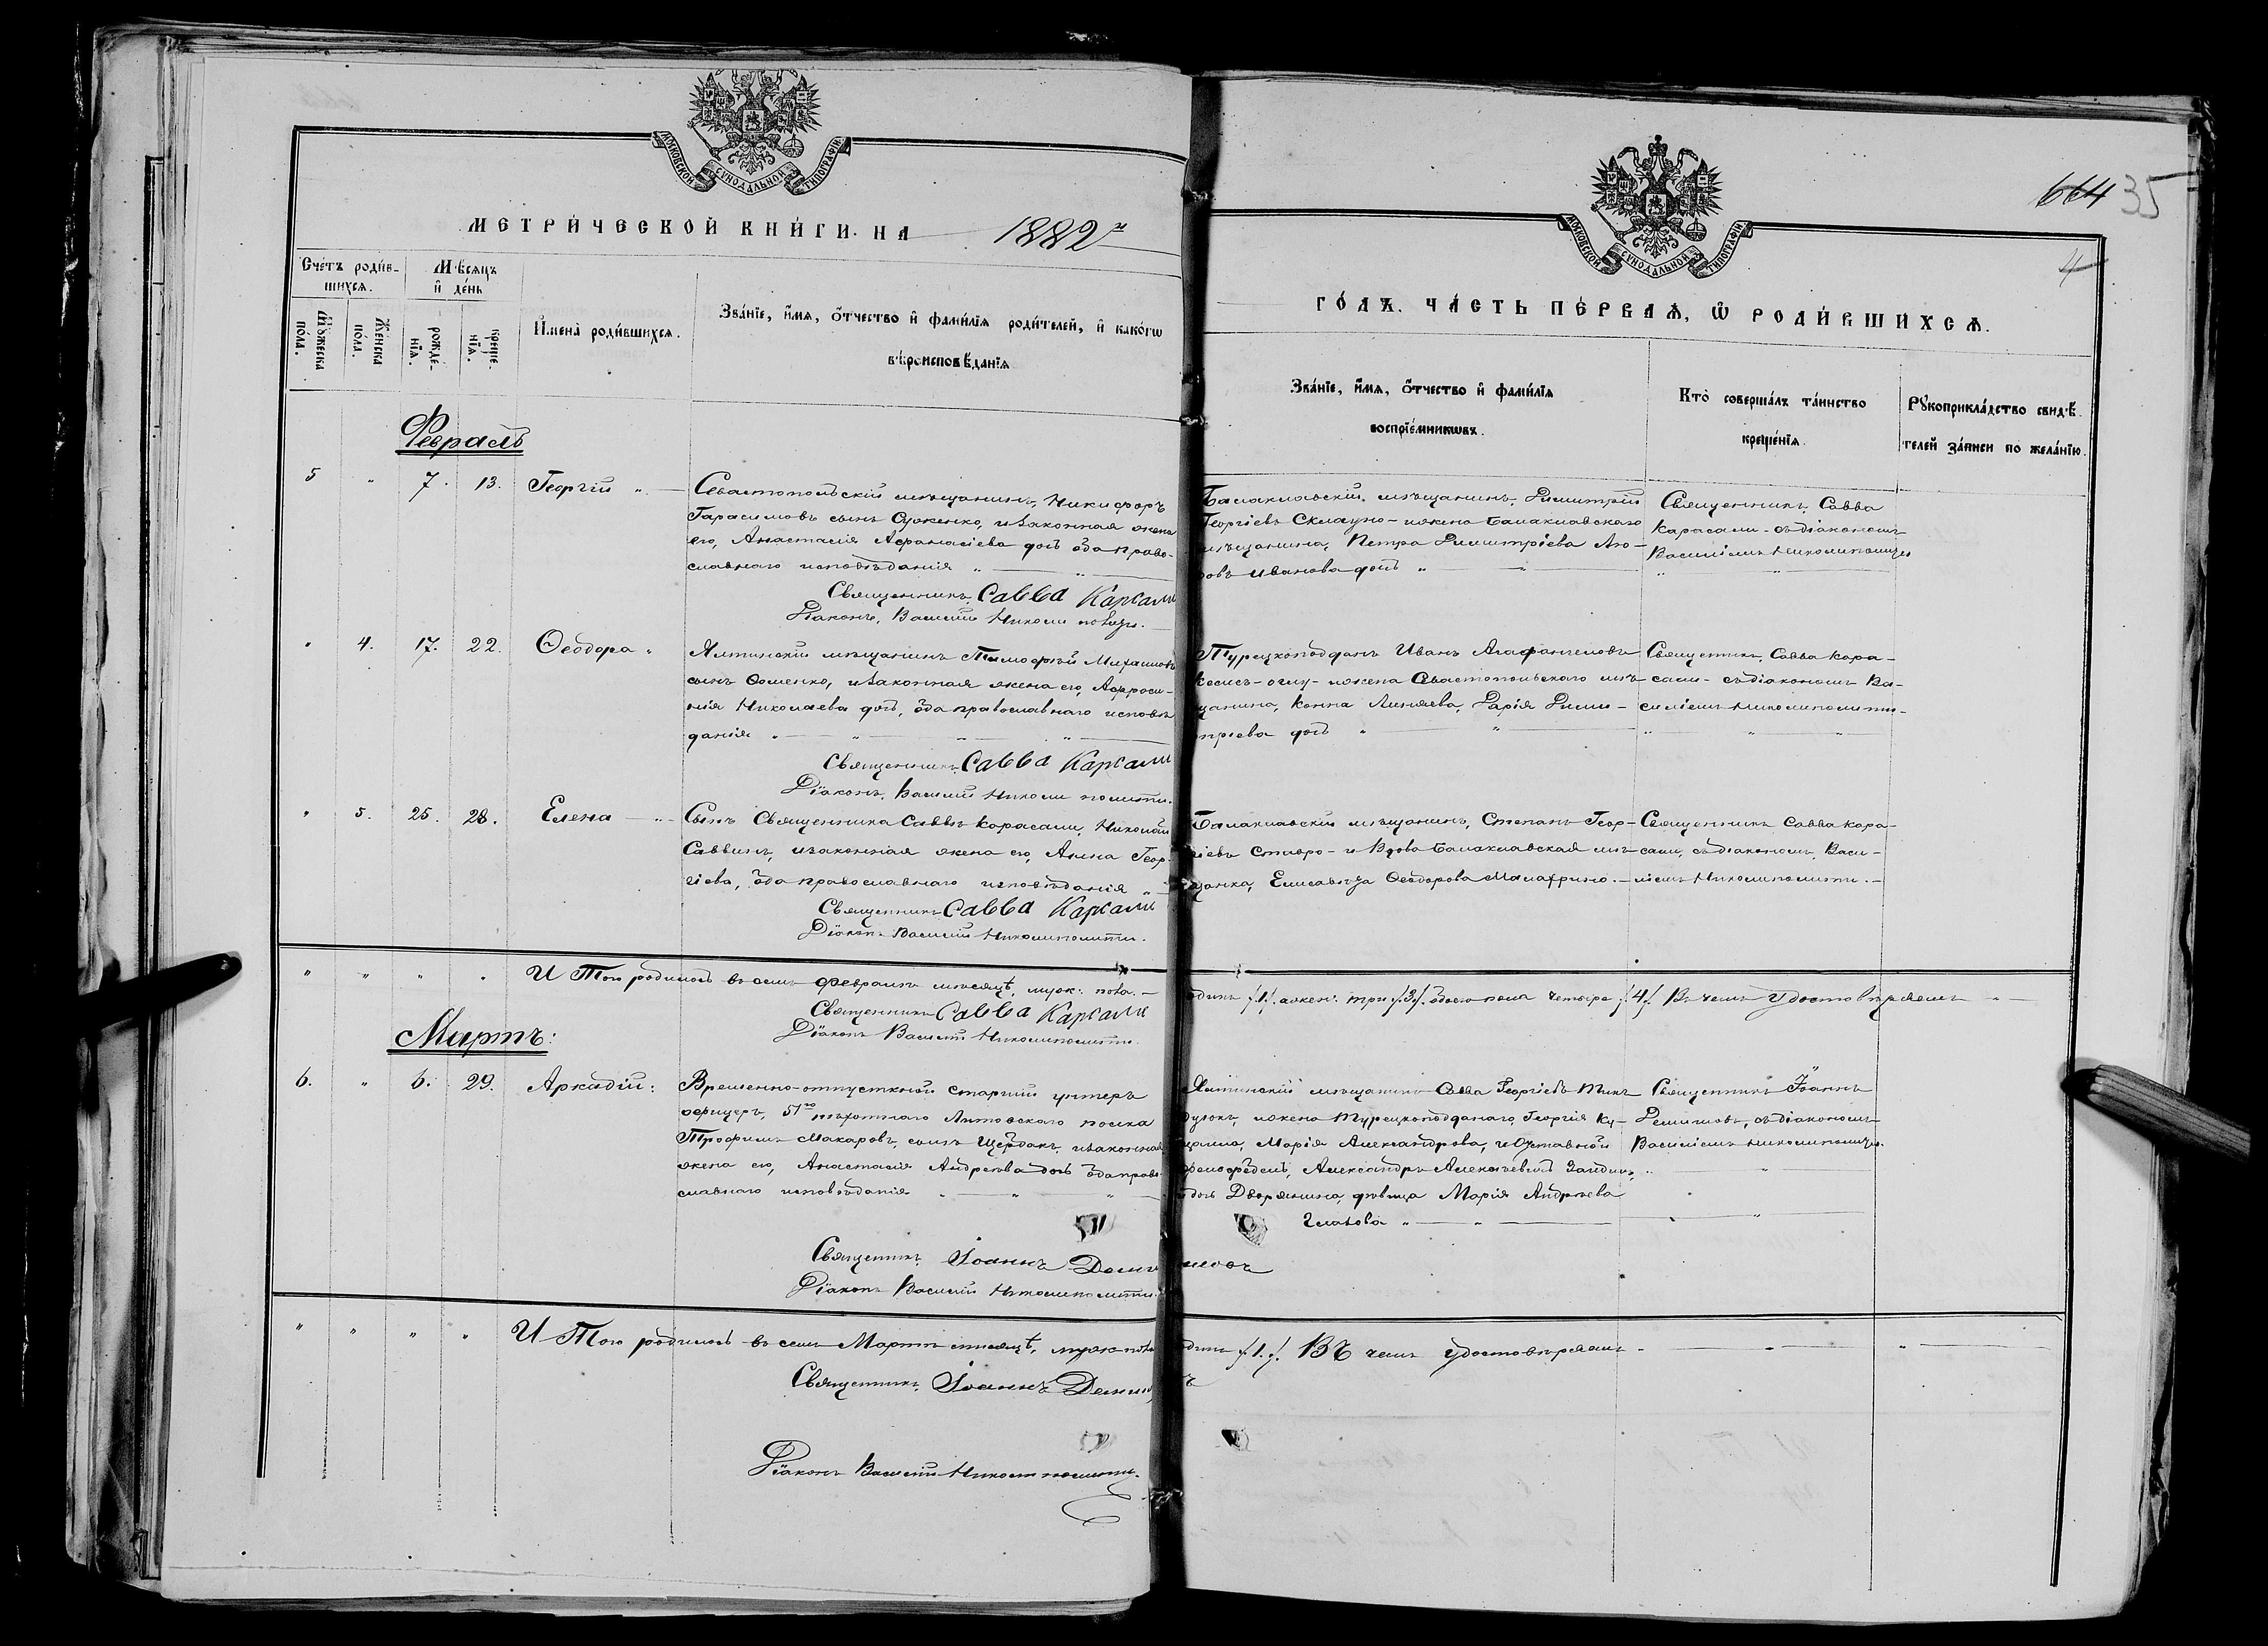 МОСКОВСКОЙ СѴНОДАЛЬНОЙ ТИПОГРАФІИ
МЕТРИ́ЧЕСКОЙ КНИ́ГИ НА 1882 й
Сче́тъ роди́в-
шихсѧ.
Мѣсѧцъ
и҆ де́нь
Мꙋ́жеска
по́ла.
Же́нска
по́ла.
рожде́-
нїѧ.
креще́-
нїѧ.
И҆мена̀ роди́вшихсѧ.
Зва́нїе, и҆́мѧ, ѻ҆́тчество и҆ фами́лїѧ роди́телей, и҆ како́гѡ
вѣроисповѣ́данїѧ
Февраль
5 " 7. 13. Георгій "
Севастопольскій мѣщанинъ, Никифоръ
Гарасимовъ сынъ Суженко, и законная жена
его, Анастасія Афанасіева дочь оба право-
славнаго исповѣданія "
Священникъ Савва Карасали
Діаконъ, Василій
" 4. 17. 22. Ѳеодора "
Ялтинскій мѣщанинъ Тимофѣй Михаиловъ
сынъ Ѳоменко, и законная жена его, Афроси-
нія Николаева дочь, оба православнаго исповѣ
данія "
Священникъ Савва Карасали
Діаконъ, Василій Никомиполити.
" 5. 25. 28. Елена "
Сынъ Священника Саввы Карасали, Николай
Саввинъ, и законная жена его, Анна Геор-
гіева, оба православнаго исповѣданія "
Священникъ Савва Карасали
Діаконъ Василій Никомиполити.
" " " " И Того родилось въ семъ Февралѣ мѣсяцѣ, муж: пола. —
Священникъ Савва Карасали
Діаконъ Василій Никомиполити.
Мартъ:
6. " 6. 29. Аркадій:
Временно-отпускной старшій унтеръ
офицеръ, 51го пѣхотнаго Литовскаго полка
Трофимъ Макаровъ, сынъ Щердакъ, и законная
жена его, Анастасія Андреева дочь оба право-
славнаго исповѣданія "
Священникъ, Іоаннъ
Діаконъ Василій Никомиполити.
" " " " И Того родилось въ семъ Мартѣ мѣсяцѣ, муж пола
Священникъ, Іоаннъ
Діаконъ Василій Никомиполити.
664 35
4
МОСКОВСКОЙ СѴНОДАЛЬНОЙ ТИПОГРАФІИ
ГО́ДЪ. ЧА́СТЬ ПЕ́РВАѦ, Ѡ҆ РОДИ́ВШИХСѦ.
Зва́нїе, и҆́мѧ, ѻ҆́тчество и҆ фами́лїѧ
воспрїе́мникѡвъ.
Кто̀ соверша́лъ та́инство
креще́нїѧ.
Рꙋкоприкла́дство свидѣ́-
телей за́писи по жела́нїю.
Балаклавскій, мѣщанинъ, Димитрій
Георгіевъ и жена Балаклавскаго
мѣщанина, Петра Димитріева
Иванова дочь "
Священникъ, Савва
Карасали - съ діакономъ
Василіемъ
Турецкоподдан. Иванъ Агафангеловъ
оглу - и жена Севастопольскаго мѣ-
щанина, Дарія Дими-
тріева дочь "
Священникъ, Савва Кара-
сали - съ діакономъ Ва-
силіемъ Никомиполити-
Балаклавскій мѣщанинъ, Степанъ Геор-
гіевъ Ставро - и Вдова Балаклавская мѣ-
щанка, Елисавета Ѳеодорова
Священникъ Савва Кара-
сали, съ діакономъ, Васи-
ліемъ Никомиполити. —
одинъ /1/. а жен: три /3/. обоего пола четыре /4/. Въ чемъ удостовѣряемъ "
Ялтинскій мѣщанинъ Савва Георгіевъ
и жена Турецкоподданаго, Георгія Ку-
Марія Александрова, и Отставной
Александръ Алексѣевичъ
и дочь Дворянина, дѣвица Марія Андреева
Священникъ Іоаннъ
съ діакономъ
Василіемъ
одинъ /1./. Въ чемъ удостовѣряемъ